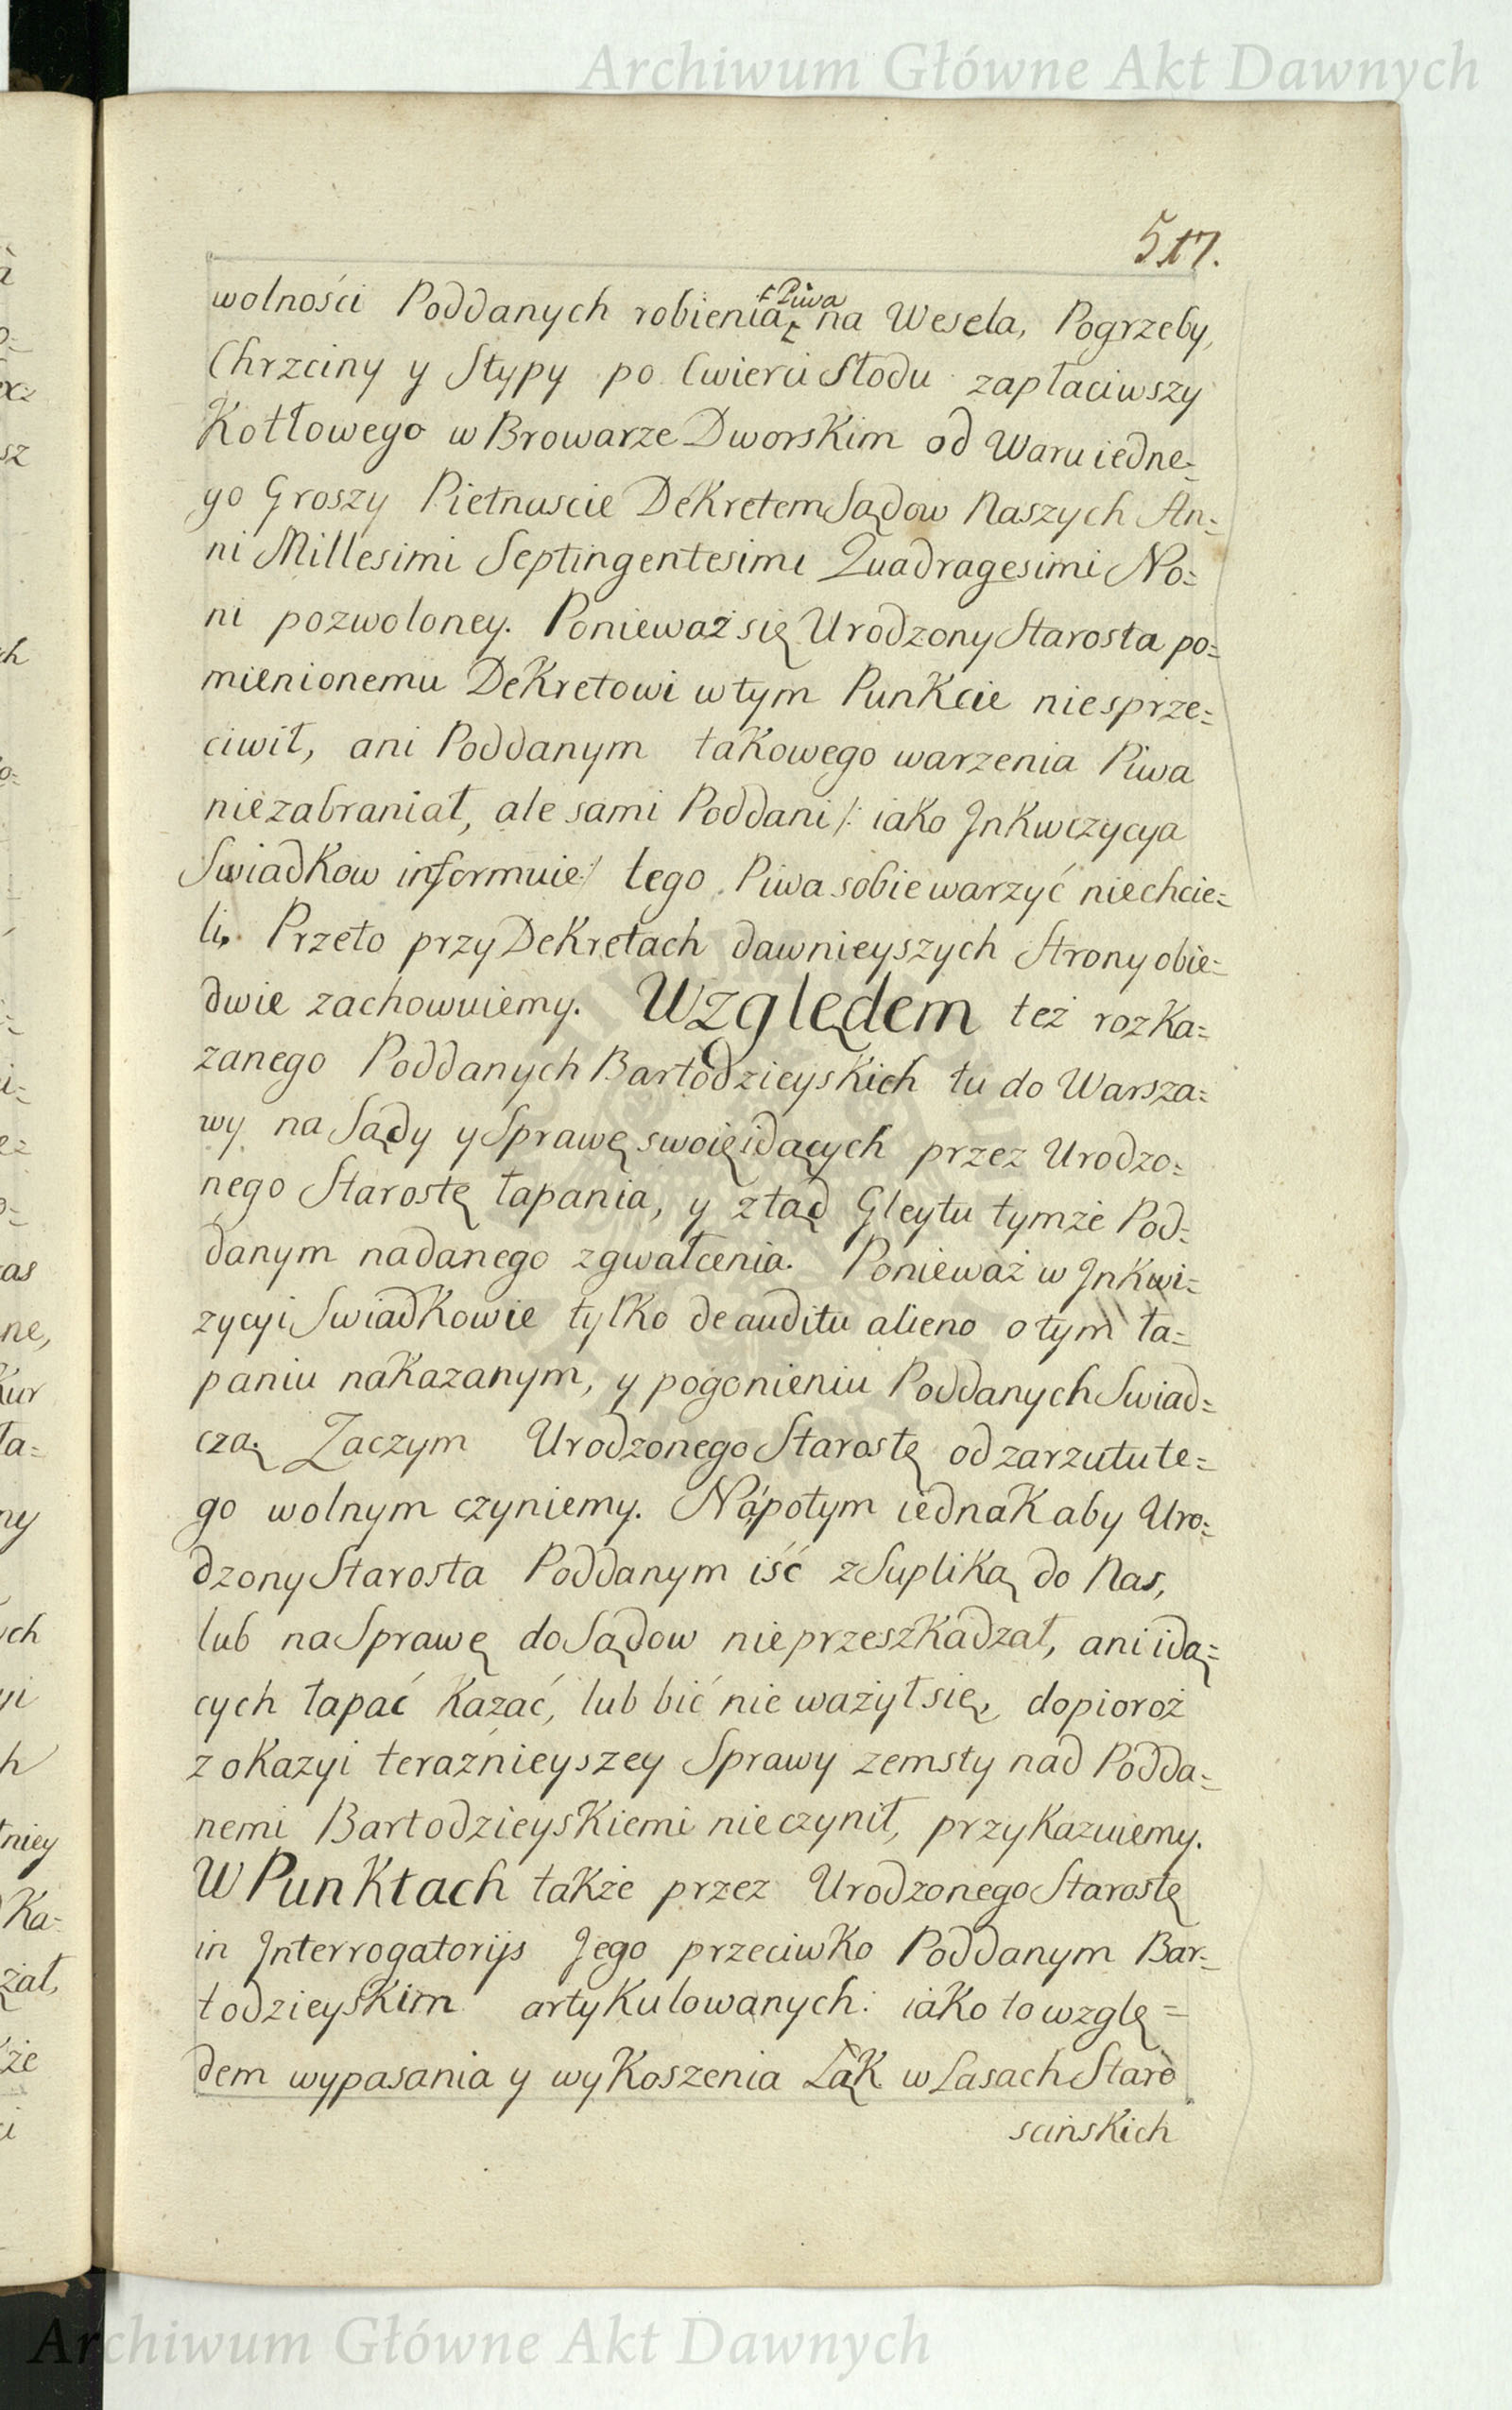 Archiwum Główne Akt Dawnych
517.
wolności Poddanych robienia Piwa na Wesela, Pogrzeby,
Chrzciny y Stypy po Cwierci Słodu zapłaciwszy
Kotłowego w Browarze Dworskim od Waru iedne=
go Groszy Pietnascie Dekretem Sądow Naszych An=
ni Millesimi Septingentesimi Quadragesimi No=
ni pozwoloney. Ponieważ się Urodzony Starosta po=
mienionemu Dekretowi w tym Punkcie niesprze=
ciwił, ani Poddanym takowego warzenia Piwa
niezabraniał, ale sami Poddani /: iako Jnkwizycya
Swiadkow informuie :/ tego Piwa sobie warzyć niechcie=
li, Przeto przy Dekretach dawnieyszych Strony obie=
dwie zachowuiemy. Względem też rozka=
zanego Poddanych Bartodzieyskich tu do Warsza=
wy na Sądy y Sprawę swoię idących przez Urodzo=
nego Starostę łapania, y ztąd Gleytu tymże Pod=
danym nadanego zgwałcenia. Ponieważ w Jnkwi=
zycyi Swiadkowie tylko de auditu alieno o tym ła=
paniu nakazanym, y pogonieniu Poddanych Swiad=
czą. Zaczym Urodzonego Starostę od zarzutu te=
go wolnym czyniemy. Nápotym iednak aby Uro=
dzony Starosta Poddanym iść z Supliką do Nas,
lub na Sprawę do Sądow nieprzeszkadzał, ani idą=
cych łapać kazać, lub bić nie ważył się, dopioroż
z okazyi teraźnieyszey Sprawy zemsty nad Podda=
nemi Bartodzieyskiemi nieczynił, przykazuiemy.
W Punktach także przez Urodzonego Starostę
in Jnterrogatorijs Jego przeciwko Poddanym Bar=
todzieyskim artykulowanych: iako to wzglę=
dem wypasania y wykoszenia Łąk w Lasach Staro
scińskich
Archiwum Główne Akt Dawnych